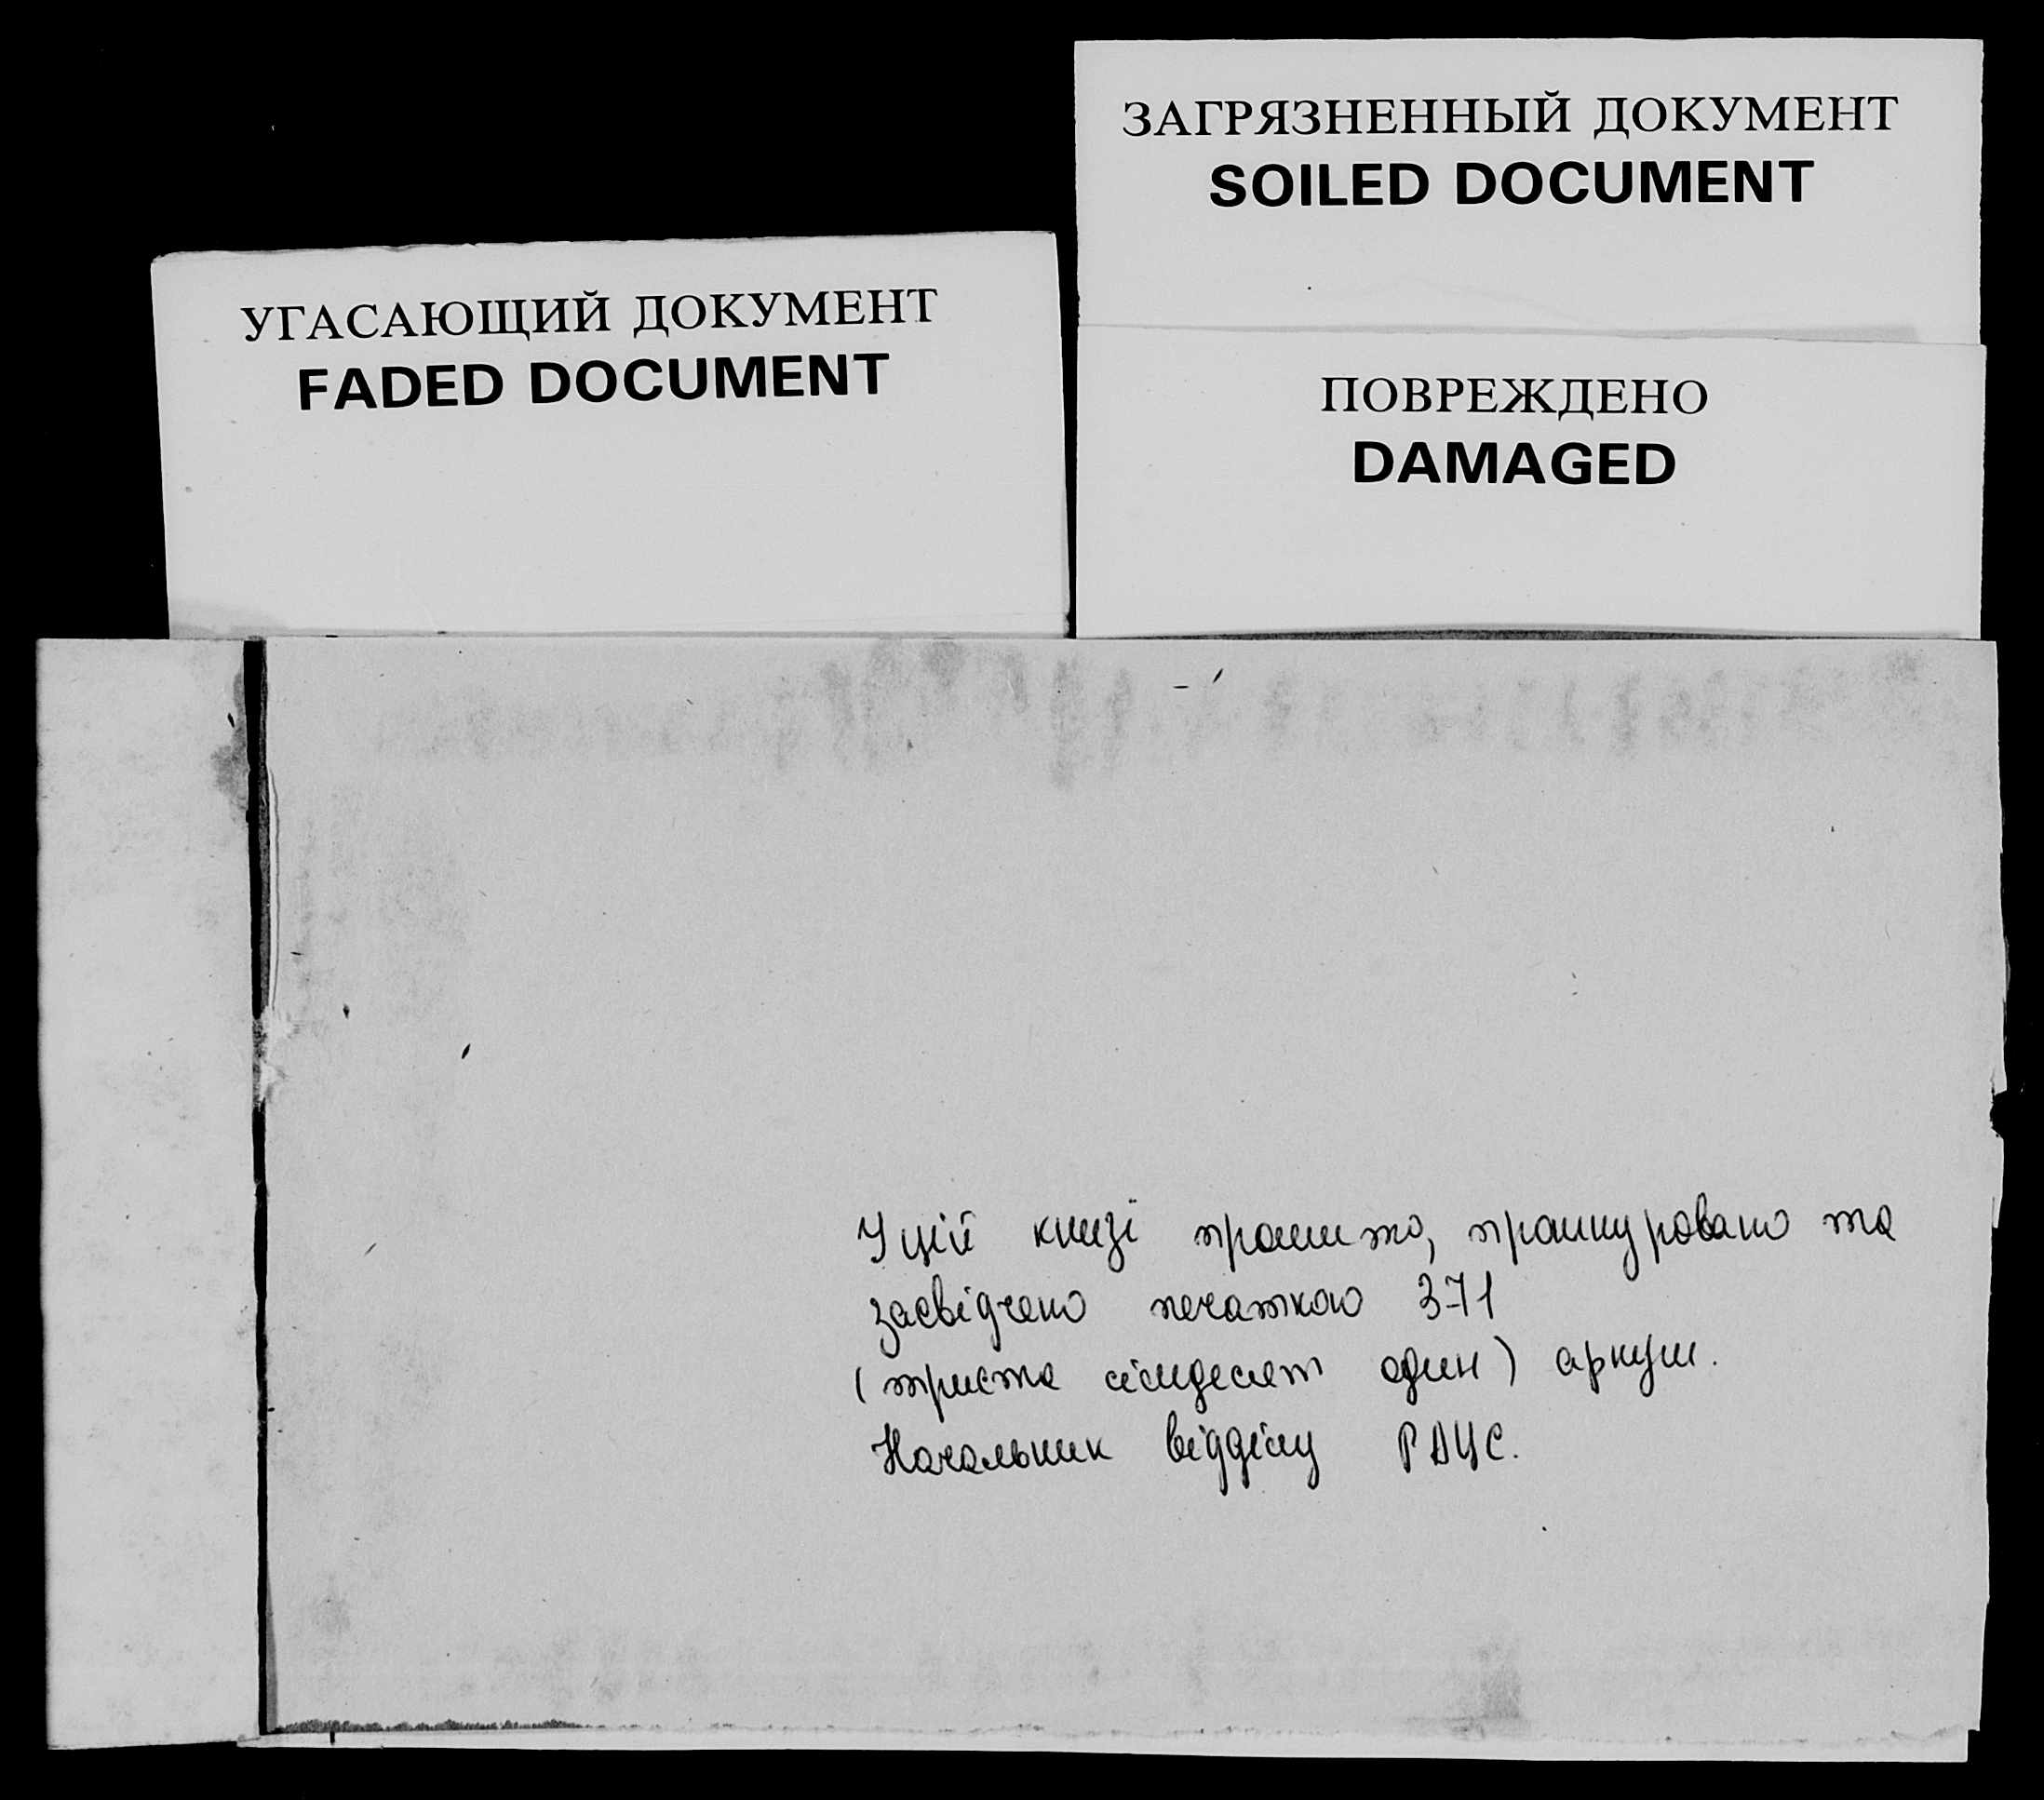 ЗАГРЯЗНЕННЫЙ ДОКУМЕНТ
SOILED DOCUMENT
УГАСАЮЩИЙ ДОКУМЕНТ
FADED DOCUMENT
ПОВРЕЖДЕНО
DAMAGED
У цій книзі прошито, прошнуровано та
засвідчено печаткою 371
(триста сімдесят один) аркуш.
Начальник відділу РАЦС.